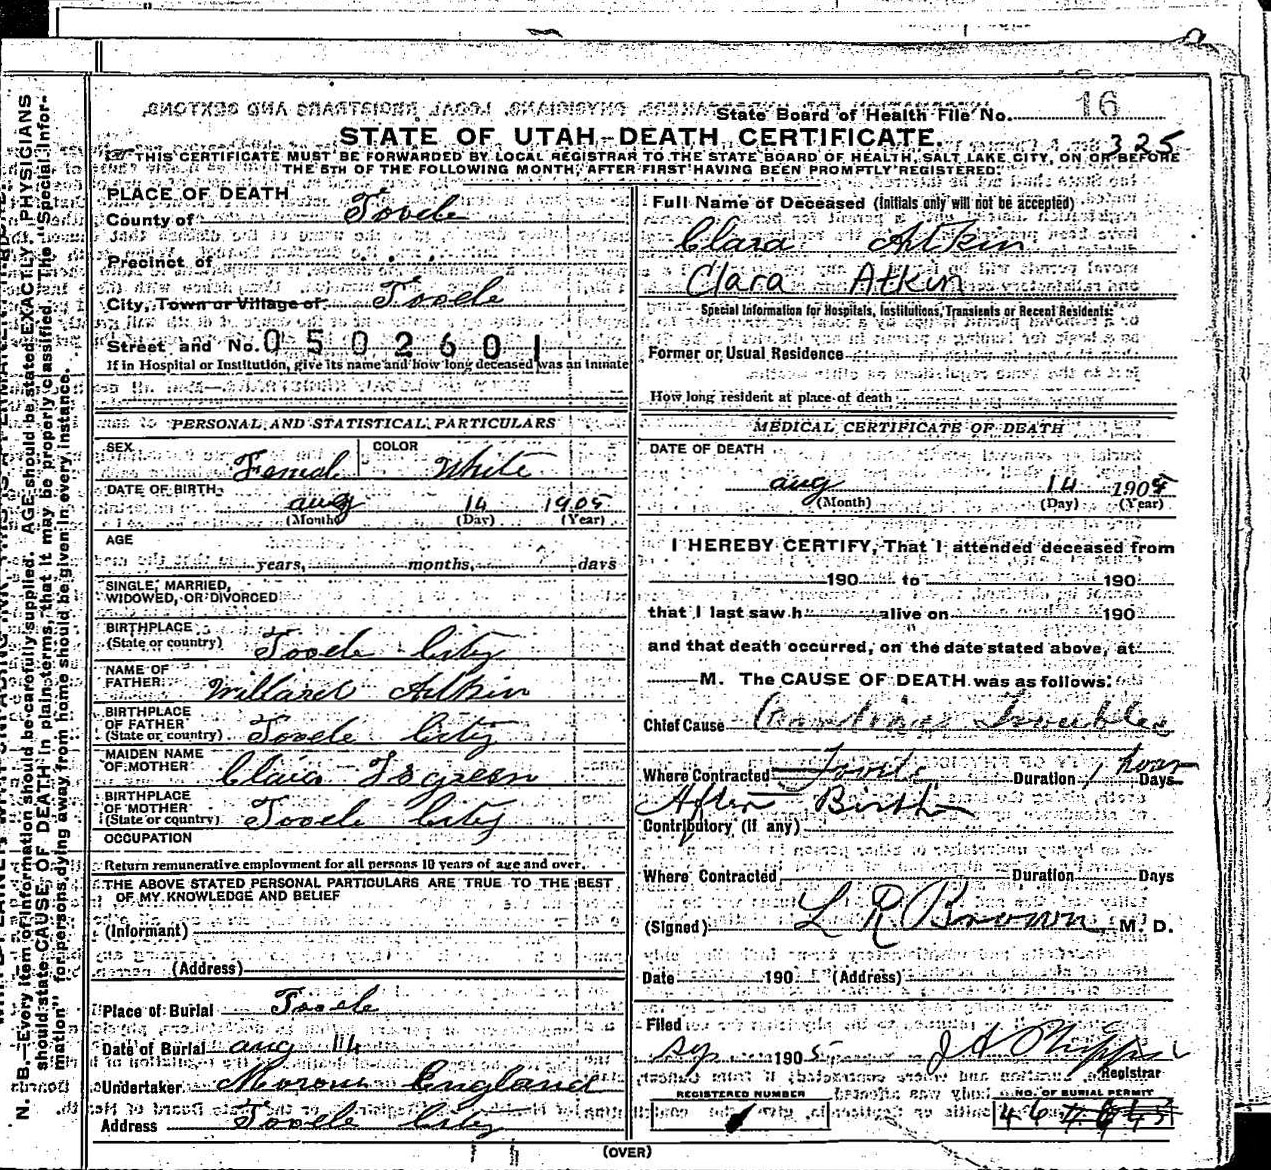 State Board of Health File No. 16
STATE OF UTAH-DEATH CERTIFICATE.
325
THIS CERTIFICATE MUST BE FORWARDED BY LOCAL REGISTRAR TO THE STATE BOARD OF HEALTH, SALT LAKE CITY, ON OR BEFORE
THE 5TH OF THE FOLLOWING MONTH, AFTER FIRST HAVING BEEN PROMPTLY REGISTERED.
PLACE OF DEATH
County of Tooele
Precinct of
City, Town or Village of Tooele
Street and No. 0502601
If in Hospital or Institution, give its name and how long deceased was an inmate
PERSONAL AND STATISTICAL PARTICULARS
SEX Femal COLOR White
DATE OF BIRTH aug 14 1905
(Month) (Day) (Year)
AGE
years, months, days
SINGLE, MARRIED,
WIDOWED, OR DIVORCED
BIRTHPLACE
(State or country) Tooele City
NAME OF
FATHER Willard Aitkin
BIRTHPLACE
OF FATHER
(State or country) Tooele City
MAIDEN NAME
OF MOTHER Clara
BIRTHPLACE
OF MOTHER
(State or country) Tooele City
OCCUPATION
Return remunerative employment for all persons 10 years of age and over.
THE ABOVE STATED PERSONAL PARTICULARS ARE TRUE TO THE BEST
OF MY KNOWLEDGE AND BELIEF
(Informant)
(Address)
Place of Burial Tooele
Date of Burial aug 14
Undertaker England
Address Tooele City
Full Name of Deceased (Initials only will not be accepted)
Clara Aitkin
Clara Atkin
Special Information for Hospitals, Institutions, Transients or Recent Residents:
Former or Usual Residence
How long resident at place of death
MEDICAL CERTIFICATE OF DEATH
DATE OF DEATH
aug 14 1905
(Month) (Day) (Year)
I HEREBY CERTIFY, That I attended deceased from
190 to 190
that I last saw h alive on 190
and that death occurred, on the date stated above, at
M. The CAUSE OF DEATH was as follows:
Chief Cause Troubles
Where Contracted Tooele Duration 1 hour Days
After Birth
Contributory (if any)
Where Contracted Duration Days
(Signed) L R Brown, M. D.
Date 190 (Address)
Filed
Sep 1905
Registrar
REGISTERED NUMBER
NO. OF BURIAL PERMIT
46
(OVER)
N. B.—Every item of information should be carefully supplied. AGE should be stated EXACTLY. PHYSICIANS
should state CAUSE OF DEATH in plain terms, that it may be properly classified. The "Special Infor-
mation" for persons dying away from home should be given in every instance.